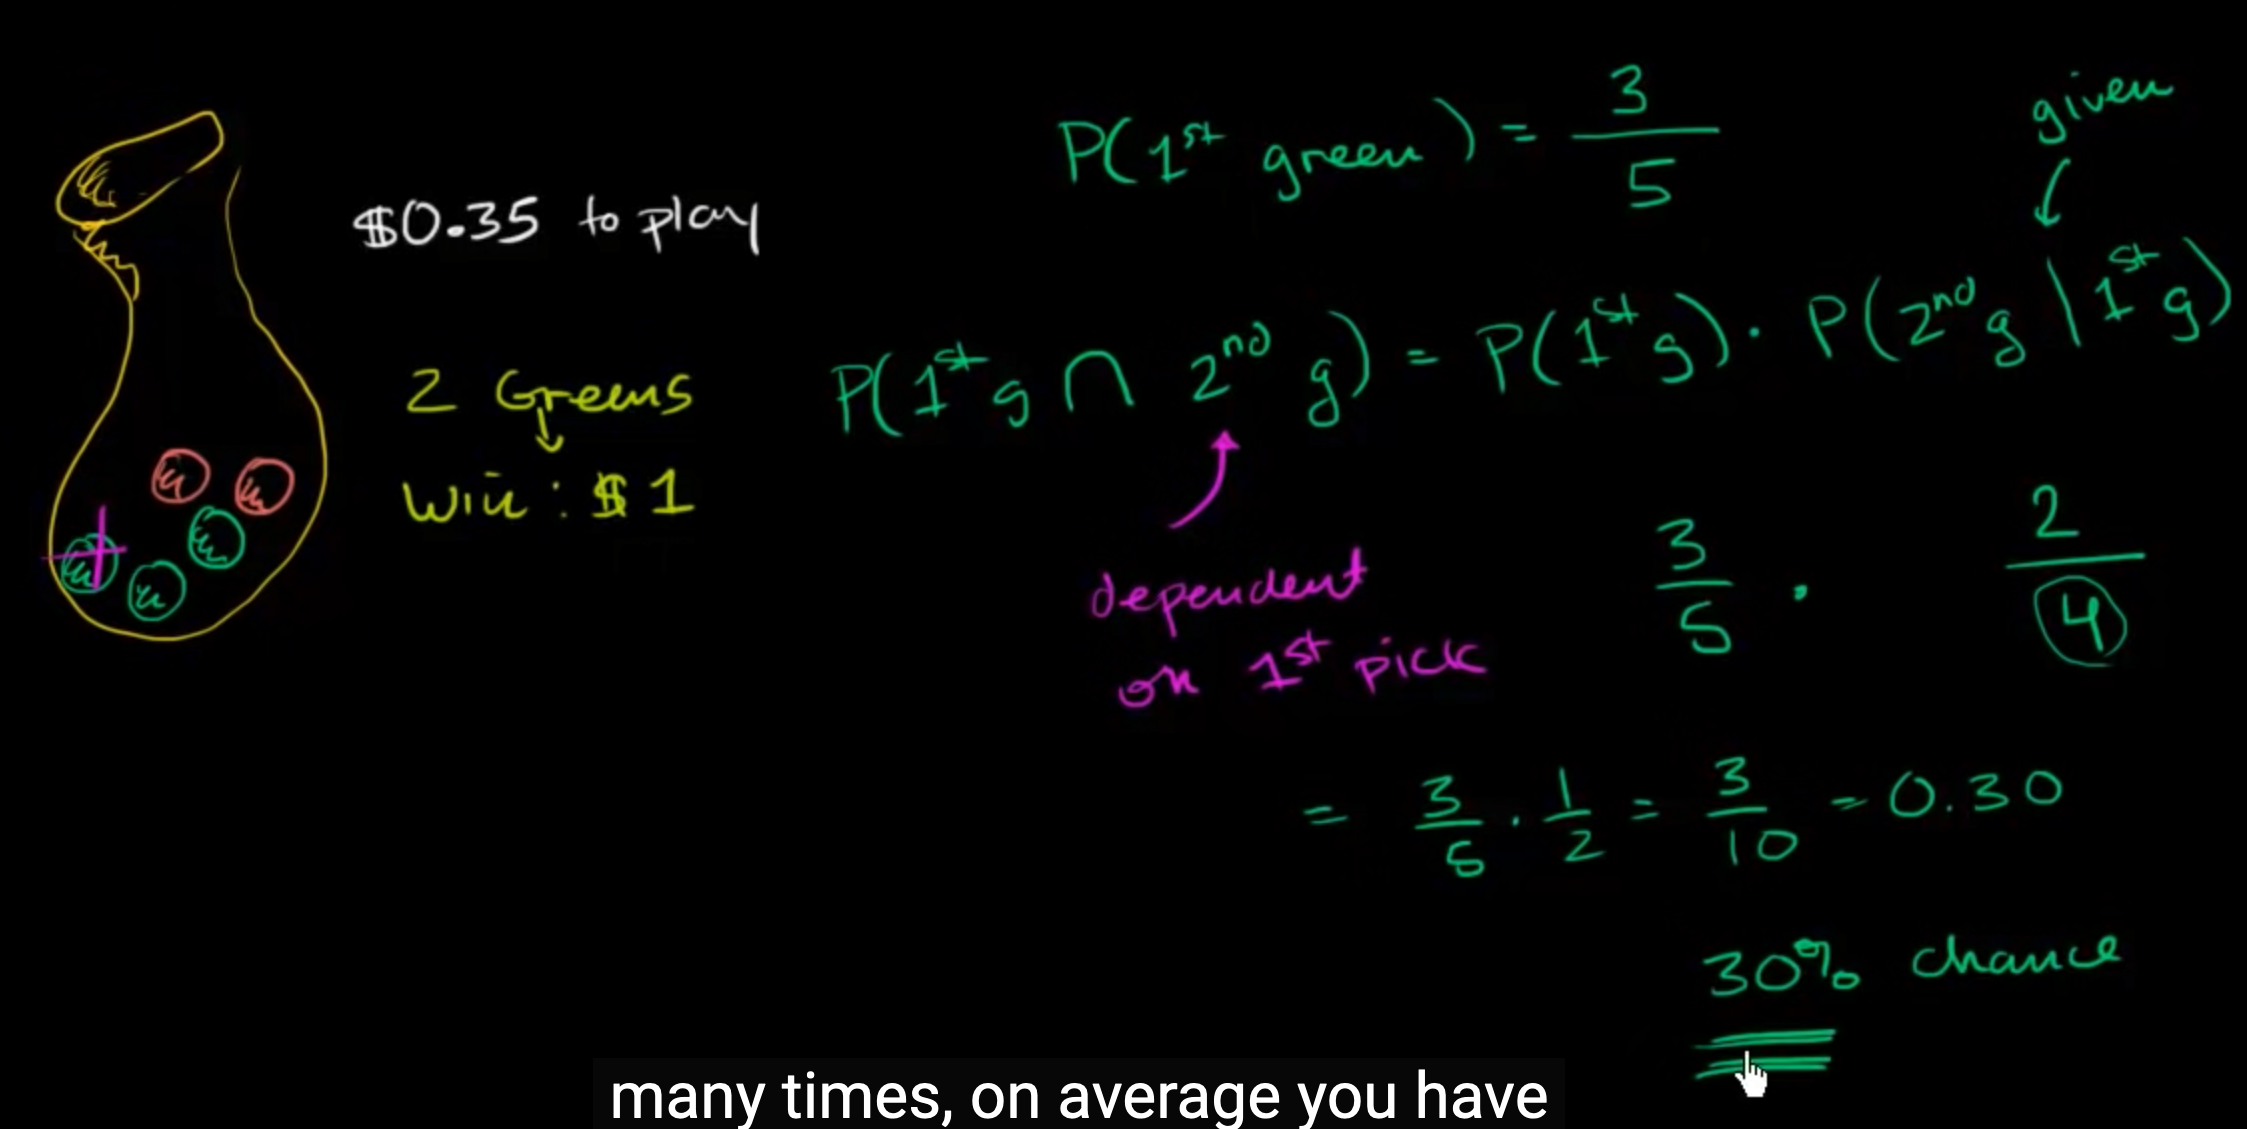 $0.35 to play
2 Greens
↓
Win: $1
P(1st green) = 3/5
given
↓
P(1st g ∩ 2nd g) = P(1st g) · P(2nd g | 1st g)
dependent
on 1st pick
3/5 · 2/4
= 3/5 · 1/2 = 3/10 = 0.30
30% chance
many times, on average you have